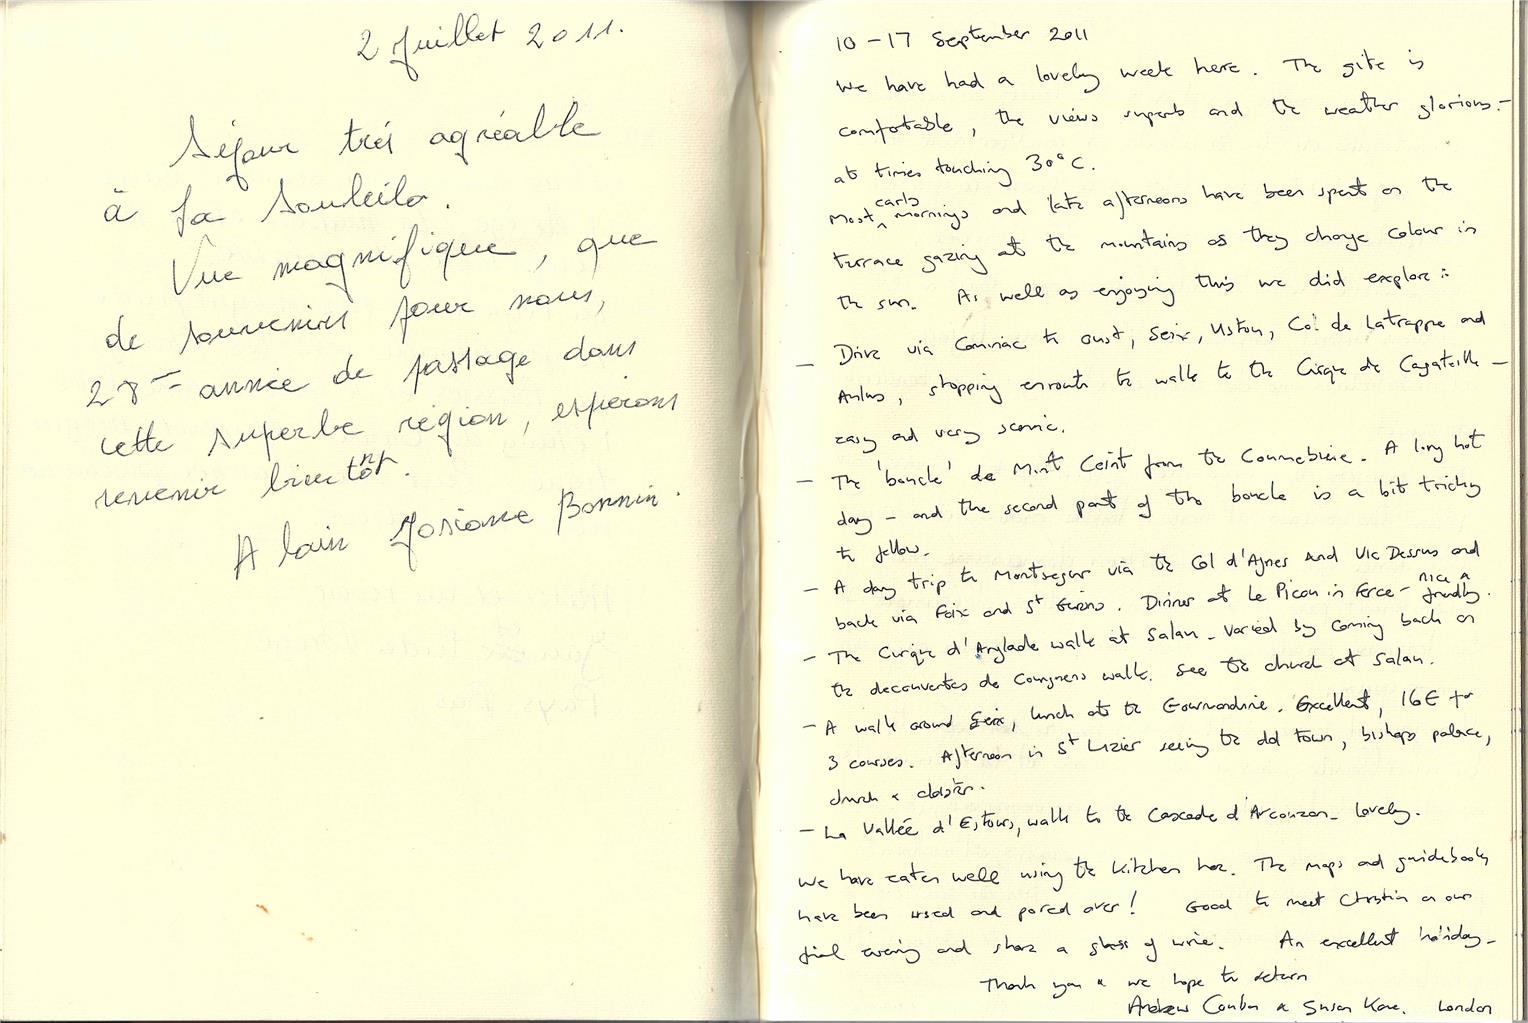 2 Juillet 2011.
Séjour très agréable
à la Souleilo.
Vue magnifique, que
de souvenirs pour nous,
28 année de passage dans
cette superbe région, espérons
revenir bientôt.
Alain Josiane Bonnin.
10 - 17 September 2011
We have had a lovely week here. The gite is
comfortable, the views superb and the weather glorious -
at times touching 30°C.
Most early mornings and late afternoons have been spent on the
terrace gazing at the mountains as they change colour in
the sun. As well as enjoying this we did explore :
- Drive via Cominac to Oust, Seix, Ustou, Col de Latrappe and
Aulus, stopping enroute to walk to the Cirque de Cagateille -
easy and very scenic.
- The 'boucle' de Mont Ceint from the . A long hot
day - and the second part of the boucle is a bit tricky
to follow.
- A day trip to Montsegur via the Col d'Agnes and Vic Dessus and
back via Foix and St Girons. Dinner at Le Picou in Erce - nice & friendly.
- The Cirque d'Anglade walk at Salau - varied by coming back on
the decouvertes de walk. See the church at Salau.
- A walk around Seix, lunch at the Gourmandine. Excellent, 16€ for
3 courses. Afternoon in St Lizier seeing the old town, bishops palace,
church & cloister.
- La Vallée d'Estours, walk to the Cascade d'Arcouzan - lovely.
We have eaten well using the kitchen here. The maps and guidebooks
have been used and pored over! Good to meet on our
final evening and share a glass of wine. An excellent holiday -
Thank you & we hope to return
Andrew & Susan London